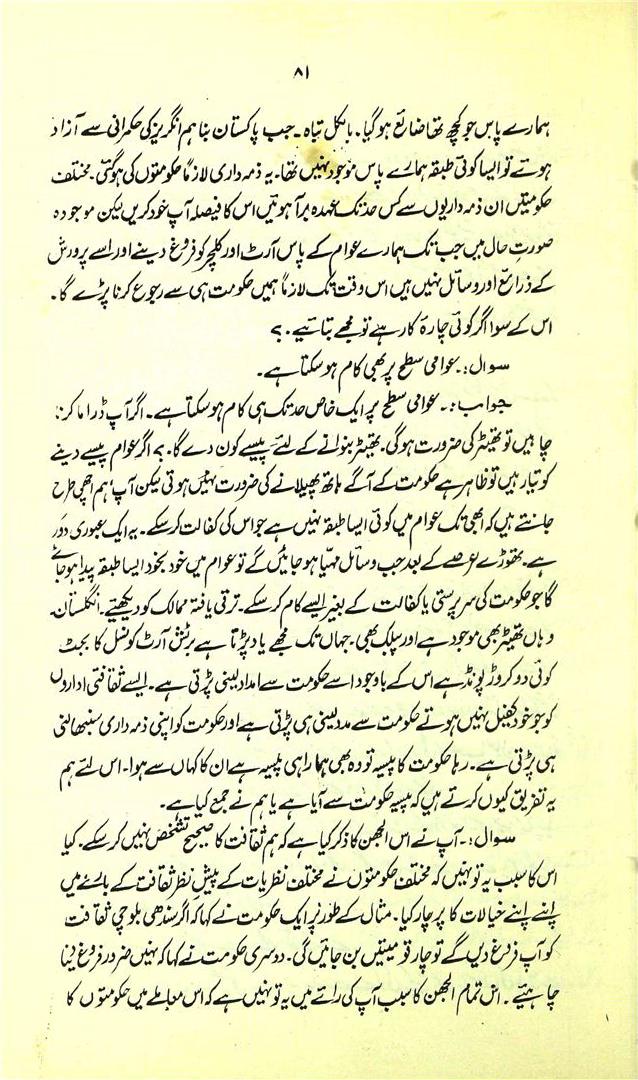 ۸۱
ہمارے پاس جو کچھ تھا ضائع ہو گیا۔ بالکل تباہ۔ جب پاکستان بنا ہم انگریز کی حکمرانی سے آزاد
ہوئے تو ایسا کوئی طبقہ ہمارے پاس موجود نہیں تھا۔ یہ ذمہ داری لازماً حکومتوں کی ہو گئی۔ مختلف
حکومتیں ان ذمہ داریوں سے کس حد تک عہدہ برآ ہوئیں اس کا فیصلہ آپ خود کریں لیکن موجودہ
صورت حال میں جب تک ہمارے عوام کے پاس آرٹ اور کلچر کو فروغ دینے اور اسے پرورش
کے ذرائع اور وسائل نہیں ہیں اس وقت تک لازماً ہمیں حکومت ہی سے رجوع کرنا پڑے گا۔
اس کے سوا اگر کوئی چارۂ کار ہے تو مجھے بتائیے۔ ؟
سوال :۔ عوامی سطح پر بھی کام ہو سکتا ہے۔
جواب :۔ عوامی سطح پر ایک خاص حد تک ہی کام ہو سکتا ہے۔ اگر آپ ڈراما کرنا
چاہیں تو تھیٹر کی ضرورت ہوگی۔ تھیٹر بنوانے کے لئے پیسے کون دے گا۔ ؟ اگر عوام پیسے دینے
کو تیار ہیں تو ظاہر ہے حکومت کے آگے ہاتھ پھیلانے کی ضرورت نہیں ہوتی لیکن آپ ہم اچھی طرح
جانتے ہیں کہ ابھی تک عوام میں کوئی ایسا طبقہ نہیں ہے جو اس کی کفالت کر سکے۔ یہ ایک عبوری دور
ہے۔ تھوڑے عرصے کے بعد جب وسائل مہیا ہو جائیں گے تو عوام میں خود بخود ایسا طبقہ پیدا ہو جائے
گا جو حکومت کی سرپرستی یا کفالت کے بغیر ایسے کام کر سکے۔ ترقی یافتہ ممالک کو دیکھئے۔ انگلستان۔
وہاں تھیٹر بھی موجود ہے اور پبلک بھی۔ جہاں تک مجھے یاد پڑتا ہے برٹش آرٹ کونسل کا بجٹ
کوئی دو کروڑ پونڈ ہے اس کے باوجود اسے حکومت سے امداد لینی پڑتی ہے۔ ایسے ثقافتی اداروں
کو جو خود کفیل نہیں ہوتے حکومت سے مدد لینی ہی پڑتی ہے اور حکومت کو اپنی ذمہ داری سنبھالنی
ہی پڑتی ہے۔ رہا حکومت کا پیسہ تو وہ بھی ہمارا ہی پیسہ ہے ان کا کہاں سے ہوا۔ اس لئے ہم
یہ تفریق کیوں کرتے ہیں کہ پیسہ حکومت سے آیا ہے یا ہم نے جمع کیا ہے۔
سوال :۔ آپ نے اس الجھن کا ذکر کیا ہے کہ ہم ثقافت کا صحیح تشخص نہیں کر سکے۔ کیا
اس کا سبب یہ تو نہیں کہ مختلف حکومتوں نے مختلف نظریات کے پیش نظر ثقافت کے بارے میں
اپنے اپنے خیالات کا پرچار کیا۔ مثال کے طور پر ایک حکومت نے کہا کہ اگر سندھی بلوچی ثقافت
کو آپ فروغ دیں گے تو چار قومیتیں بن جائیں گی۔ دوسری حکومت نے کہا کہ نہیں ضرور فروغ دینا
چاہیئے۔ اس تمام الجھن کا سبب آپ کی رائے میں یہ تو نہیں ہے کہ اس معاملے میں حکومتوں کا